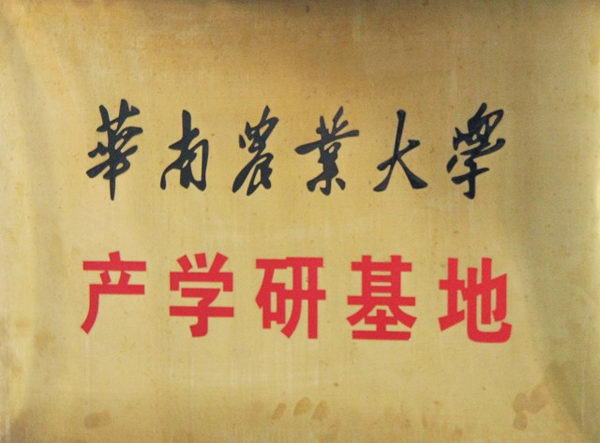 華南農業大學
产学研基地